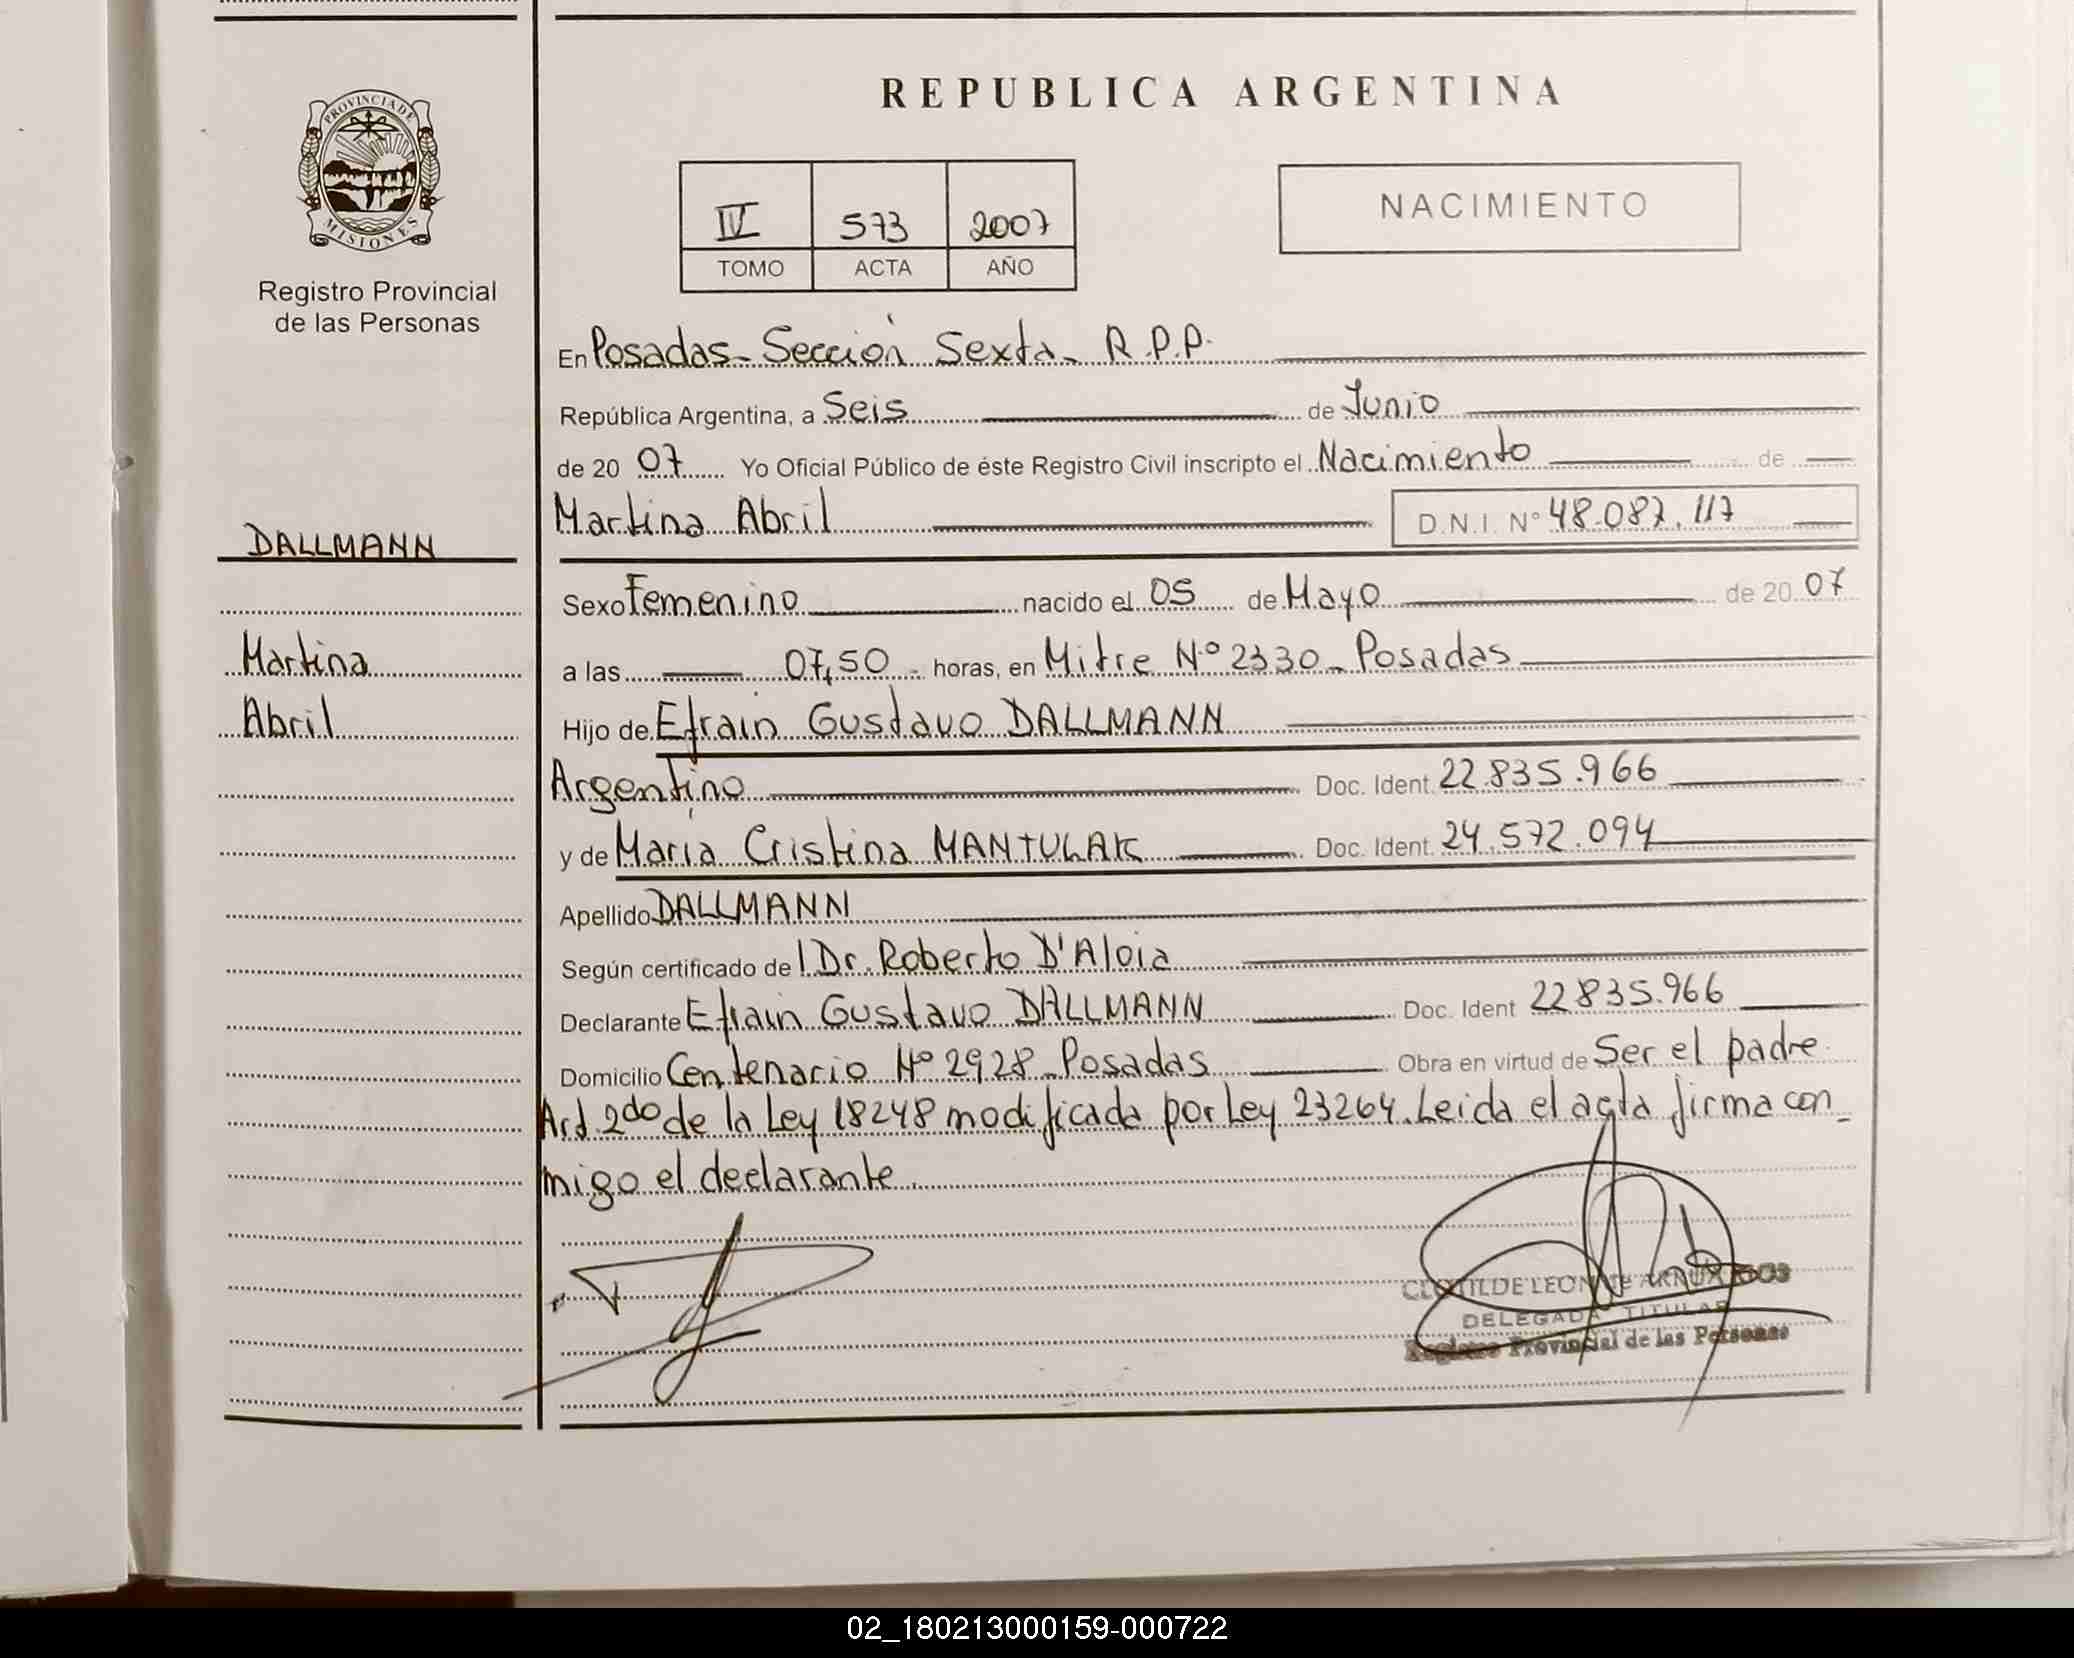 REPUBLICA ARGENTINA
PROVINCIA DE
MISIONES
Registro Provincial
de las Personas
IV 573 2007
TOMO ACTA AÑO
NACIMIENTO
En Posadas - Sección Sexta - R.P.P.
República Argentina, a Seis de Junio
de 20 07 Yo Oficial Público de éste Registro Civil inscripto el Nacimiento de
Martina Abril D.N.I. Nº 48.087.117
DALLMANN
Martina
Abril
Sexo Femenino nacido el 05 de Mayo de 20 07
a las 07,50 horas, en Mitre Nº 2330 - Posadas
Hijo de Efrain Gustavo DALLMANN
Argentino Doc. Ident. 22.835.966
y de Maria Cristina MANTULAK Doc. Ident. 24.572.094
Apellido DALLMANN
Según certificado de l Dr. Roberto D'Aloia
Declarante Efrain Gustavo DALLMANN Doc. Ident 22835.966
Domicilio Centenario Nº 2928 - Posadas Obra en virtud de Ser el padre
Art 2do de la Ley 18248 modificada por Ley 23264. Leida el acta firma con_
migo el declarante.
CLOTILDE LEON DELEGADA TITULAR
Registro Provincial de las Personas
02_180213000159-000722